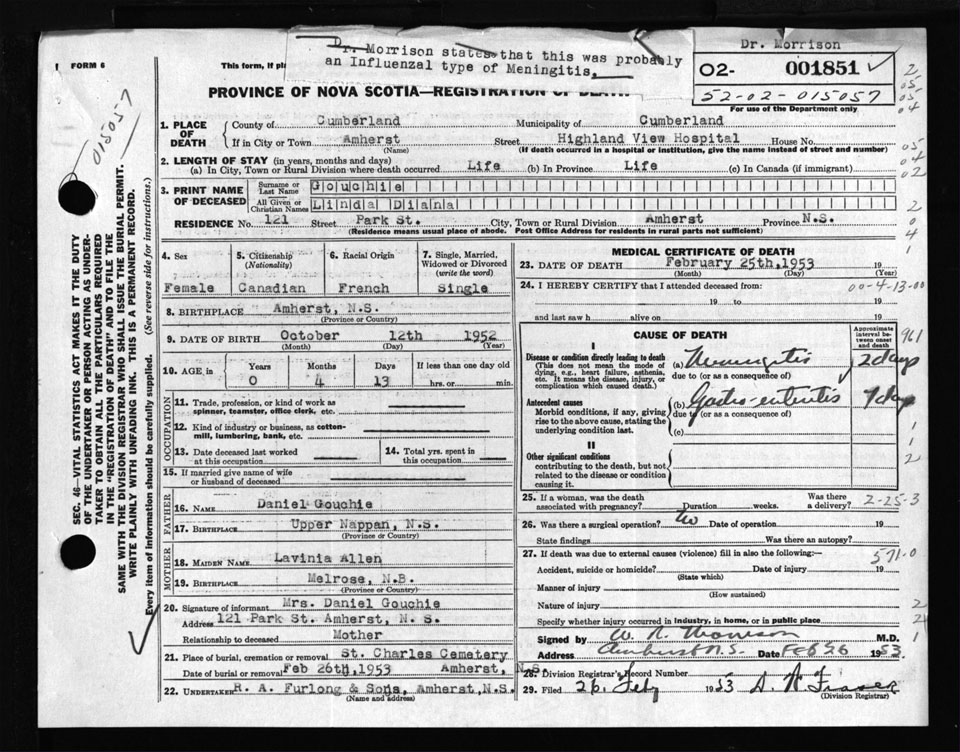 Dr. Morrison states that this was probably
an Influenzal type of Meningitis.
Dr. Morrison
FORM 6
This form, if pl
O2- 001851
52-02-015057
015057
For use of the Department only
PROVINCE OF NOVA SCOTIA—REGISTRATION OF DEATH
1. PLACE OF DEATH
County of Cumberland Municipality of Cumberland
If in City or Town Amherst Street Highland View Hospital House No.
(Name) (If death occurred in a hospital or institution, give the name instead of street and number)
2. LENGTH OF STAY (in years, months and days)
(a) In City, Town or Rural Division where death occurred Life (b) In Province Life (c) In Canada (if immigrant)
3. PRINT NAME OF DECEASED
Surname or Last Name Gouchie
All Given or Christian Names Linda Diana
RESIDENCE No. 121 Street Park St. City, Town or Rural Division Amherst Province N.S.
(Residence means usual place of abode. Post Office Address for residents in rural parts not sufficient)
4. Sex 5. Citizenship (Nationality) 6. Racial Origin 7. Single, Married, Widowed or Divorced (write the word)
Female Canadian French Single
8. BIRTHPLACE Amherst, N.S.
(Province or Country)
9. DATE OF BIRTH October 12th 1952
(Month) (Day) (Year)
10. AGE in Years Months Days If less than one day old
0 4 13 hrs. or min.
OCCUPATION
11. Trade, profession, or kind of work as spinner, teamster, office clerk, etc.
12. Kind of industry or business, as cotton-mill, lumbering, bank, etc.
13. Date deceased last worked at this occupation
14. Total yrs. spent in this occupation
15. If married give name of wife or husband of deceased
FATHER
16. Name Daniel Gouchie
17. Birthplace Upper Nappan, N.S.
(Province or Country)
MOTHER
18. Maiden Name Lavinia Allen
19. Birthplace Melrose, N.B.
(Province or Country)
20. Signature of informant Mrs. Daniel Gouchie
Address 121 Park St. Amherst, N. S.
Relationship to deceased Mother
21. Place of burial, cremation or removal St. Charles Cemetery
Date of burial or removal Feb 26th, 1953 Amherst, N.S.
22. Undertaker R. A. Furlong & Sons, Amherst, N.S.
(Name and address)
MEDICAL CERTIFICATE OF DEATH
23. DATE OF DEATH February 25th, 1953 19
(Month) (Day) (Year)
24. I HEREBY CERTIFY that I attended deceased from:
00-4-13-00
19 to 19
and last saw h alive on 19
CAUSE OF DEATH
Approximate interval between onset and death
I
Disease or condition directly leading to death
(This does not mean the mode of dying, e.g., heart failure, asthenia, etc. It means the disease, injury, or complication which caused death.)
(a) Meningitis 2 days
due to (or as a consequence of)
Antecedent causes
Morbid conditions, if any, giving rise to the above cause, stating the underlying condition last.
(b) Gastro-enteritis
due to (or as a consequence of)
(c)
II
Other significant conditions
contributing to the death, but not related to the disease or condition causing it.
25. If a woman, was the death associated with pregnancy? Duration weeks. Was there a delivery?
2-25-3
26. Was there a surgical operation? No Date of operation 19
State findings Was there an autopsy?
27. If death was due to external causes (violence) fill in also the following:—
571-0
Accident, suicide or homicide? Date of injury 19
(State which)
Manner of injury
(How sustained)
Nature of injury
Specify whether injury occurred in industry, in home, or in public place
Signed by M.D.
Address Amherst N.S. Date Feb 26 1953.
28. Division Registrar's Record Number
29. Filed 26 Feby 1953
(Division Registrar)
SEC. 46—VITAL STATISTICS ACT MAKES IT THE DUTY
OF THE UNDERTAKER OR PERSON ACTING AS UNDER-
TAKER TO OBTAIN ALL THE PARTICULARS REQUIRED
IN THE "REGISTRATION OF DEATH" AND TO FILE THE
SAME WITH THE DIVISION REGISTRAR WHO SHALL ISSUE THE BURIAL PERMIT.
WRITE PLAINLY WITH UNFADING INK. THIS IS A PERMANENT RECORD.
Every item of information should be carefully supplied. (See reverse side for instructions.)